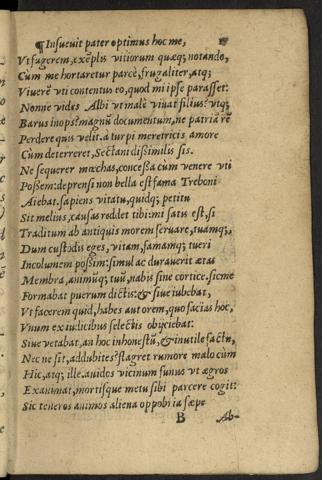 ¶Insueuit pater optimus hoc me,
Vt fugerem, exẽplis vitiorum quæq; notando,
Cum me hortaretur parcè, frugaliter, atq;
Viuerẽ vti contentus eo, quod mi ipse parasset:
Nonne vides Albi vt malè viuat filius? vtq;
Barus inops? magnũ documentum, ne patriã rẽ
Perdere quis velit. à turpi meretricis amore
Cùm deterreret, Sectani dißimilis sis.
Ne sequerer mœchas, concessa cùm venere vti
Possem: deprensi non bella est fama Treboni
Aiebat. sapiens vitatu, quidq; petitu
Sit melius, causas reddet tibi: mi satis est, si
Traditum ab antiquis morem seruare, tuamq;,
Dum custodis eges, vitam, famamq; tueri
Incolumem possim: simul ac durauerit ætas
Membra, animũq; tuũ, nabis sine cortice. sic me
Formabat puerum dictis: & siue iubebat,
Vt facerem quid, habes autorem, quo facias hoc,
Vnum ex iudicibus selectis obijciebat.
Siue vetabat, an hoc inhonestũ, & inutile factu,
Nec ne sit, addubites? flagret rumore malo cùm
Hic, atq; ille. auidos vicinum funus vt ægros
Exanimat, mortisque metu sibi parcere cogit:
Sic teneros animos aliena opprobria sæpe
B Ab-